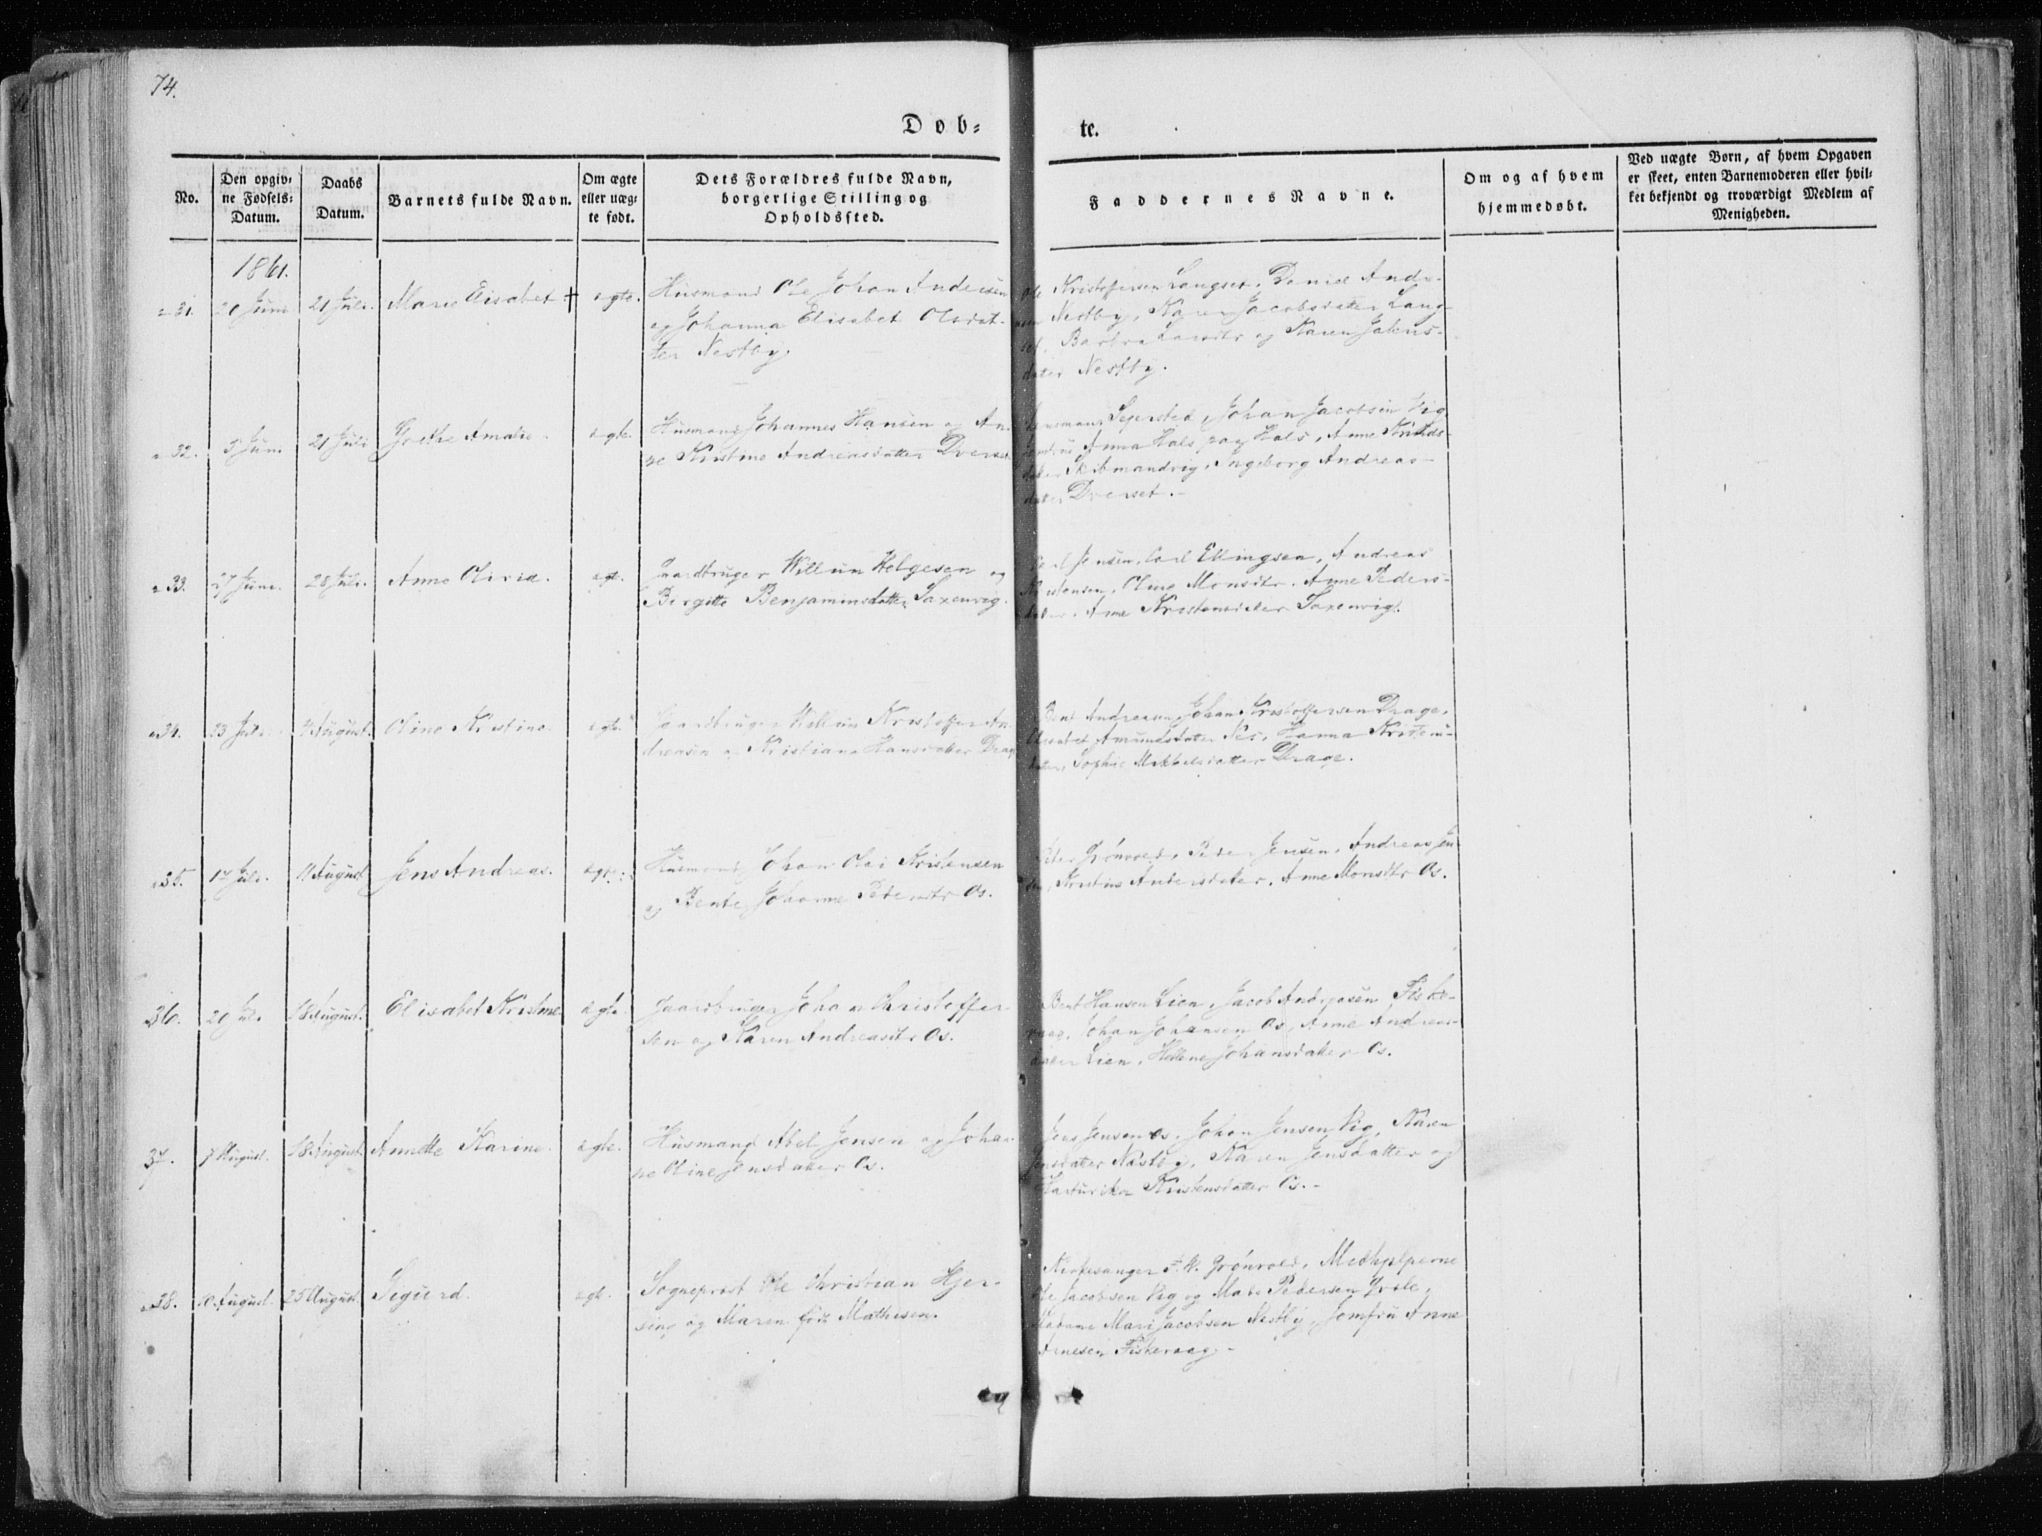 74.
Døb-
te.
No.
Den opgiv-
ne Fødsels-
Datum.
Daabs
Datum.
Barnets fulde Navn.
Om ægte
eller uæg-
te født.
Dets Forældres fulde Navn,
borgerlige Stilling og
Opholdssted.
Faddernes Navne.
Om og af hvem
hjemmedøbt.
Ved uægte Børn, af hvem Opgaven
er skeet, enten Barnemoderen eller hvil-
ket bekjendt og troværdigt Medlem af
Menigheden.
1861.
31. 20 Juni 21 Juli. Marie Elisabet + ægte. Husmand Ole Johan Andersen
og Johanna Elisabet Olsdat-
ter Nestby
Ole Kristoffersen Langset, Daniel Andr-
Nestby, Karen Jacobsdatter Lang-
set, og Karen
datter Nestby.
32. Juni 21 Juli Amalie. ægte. Husmand Johannes Hansen og An-
ne Kristine Andreasdatter Dverset
Segelsted, Johan Jacobsen Vig
Anna Hals paa Hals, Anne
Skibmandvig, Ingeborg Andreas-
datter Dverset.-
33. 27 Juni. 28 Juli. Anne Olivia. ægt. Gaardbruger Willum Helgesen og
Birgitte Benjaminsdatter Saxenvig.
Jensen, Carl Ellingsen, Andreas
Kristensen, Oline Monsdtr. Anne Peders-
datter, Anne Kristensdatter Saxenvig.
34. 23 Juli. 4 August. Oline Kristine ægte. Gaardbruger Willum Kristoffer An-
dreasen og Kristiane Hansdatter Drage
Bent Andreasen, Johan Kristoffersen Drage,
Elisabet Amundsdatter Nes, Hanna Kristens-
datter, Sophie Mikkelsdatter Drage.
35. 17 Juli. 11 August. Jens Andreas. ægte. Husmand Johan Olai Kristensen
og Bente Johanne Pedersdtr Os.
Peter Grønvold, Peder Jensen, Andreas Jen-
sen, Kristine Andersdatter, Anne Monsdtr Os.
36. 20 Juli. 18 August. Elisabet Kristine ægte. Gaardbruger Johan Christoffer-
sen og Karen Andreasdtr Os.
Bent Hansen Lien, Jacob Andreasen Fiske-
vaag, Johan Johansen Os, Anne Andreas-
datter Lien, Hellene Johansdatter Os.
37. 7 August. 18 August. Annette Karine. ægte. Husmand Abel Jensen og Johan-
ne Oline Jensdatter Os.
Jens Jensen Os, Johan Jensen Vig, Karen
Jensdatter Nestby, Karen Jensdatter og
Kristensdatter Os.-
38. 10 August. 25 August Sigurd. ægte. Sogneprest Ole Christian Hjer-
sing og Maren født Mathisen.
Kirkesanger F. W. Grønvold, Medhjelperne
Ole Jacobsen Vig og Mads Pedersen
Madame Mari Jacobsen Nestby, Jomfru Anne
Arnesen Fiskevaag.-